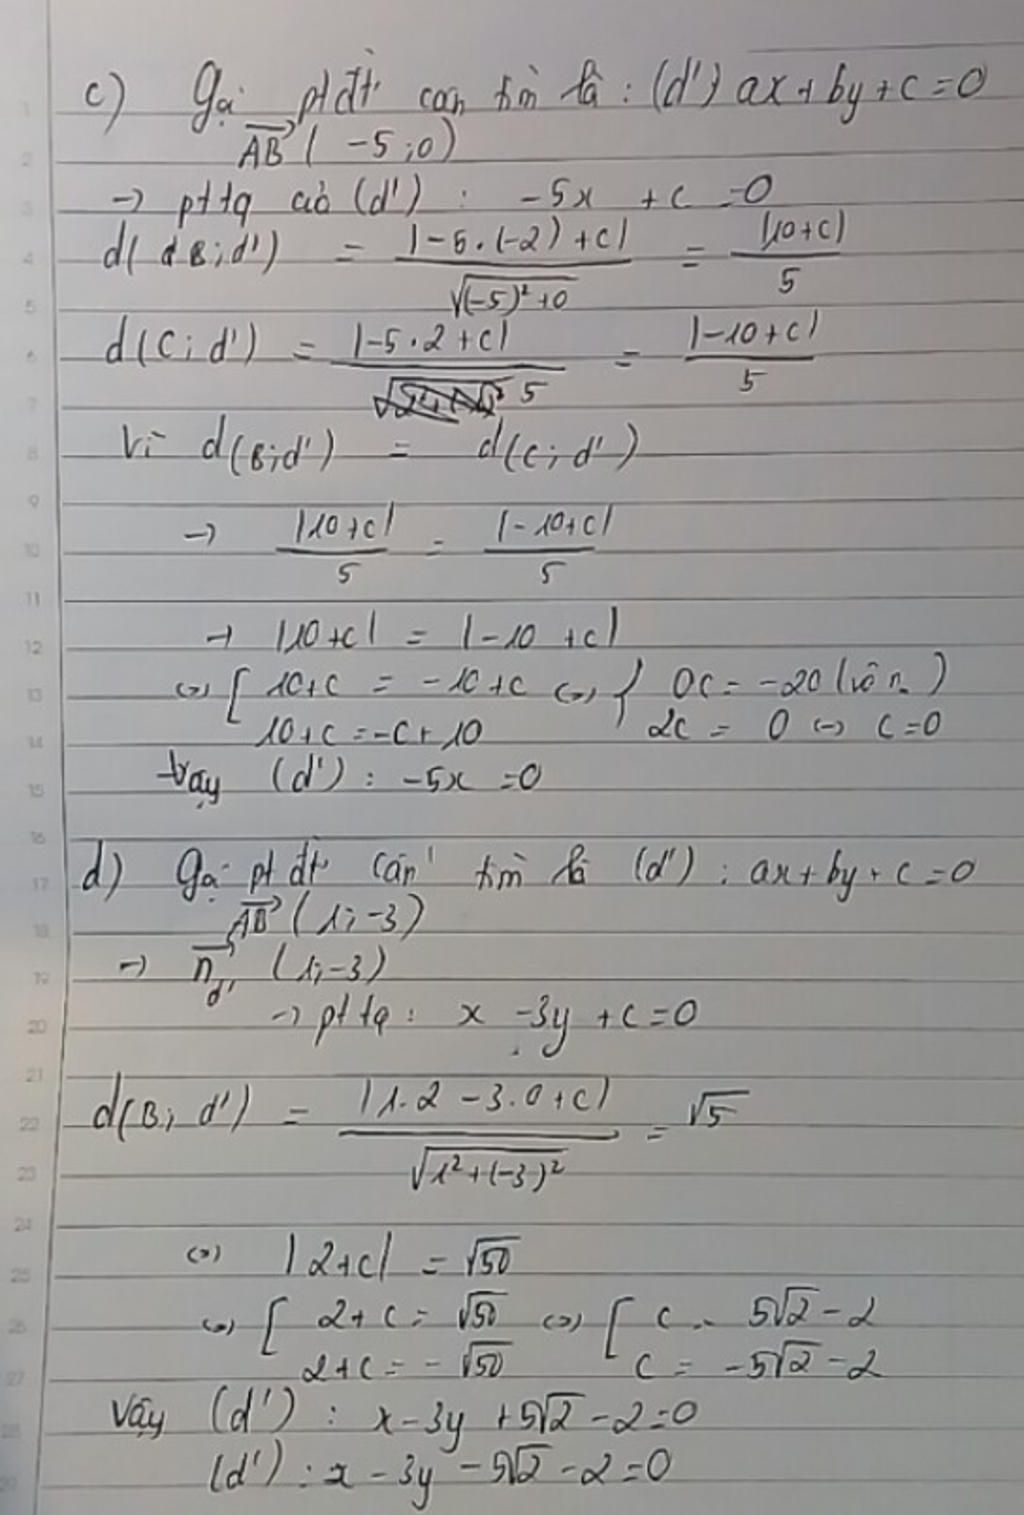 c) Gọi ptđt cần tìm là : (d') ax + by + c = 0
AB ( -5 ; 0)
→ pttq của (d') : -5x + c = 0
d( B ; d') = |-5 . (-2) + c| / √(-5)² + 0 = |10 + c| / 5
d(C ; d') = |-5 . 2 + c| / 5 = |-10 + c| / 5
Vì d(B;d') = d(C; d')
→ |10 + c| / 5 = |-10 + c| / 5
→ |10 + c| = |-10 + c|
<=> [ 10 + c = -10 + c <=> { 0c = -20 (vô n.)
10 + c = -c + 10 2c = 0 <=> c = 0
Vậy (d') : -5x = 0
d) Gọi pt đt cần tìm là (d') : ax + by + c = 0
AB ( 1; -3 )
→ n d' ( 1; -3 )
→ pttq : x - 3y + c = 0
d(B; d') = |1.2 - 3.0 + c| / √1² + (-3)² = √5
<=> |2 + c| = √50
<=> [ 2 + c = √50 <=> [ c = 5√2 - 2
2 + c = -√50 c = -5√2 - 2
Vậy (d') : x - 3y + 5√2 - 2 = 0
(d') : x - 3y - 5√2 - 2 = 0